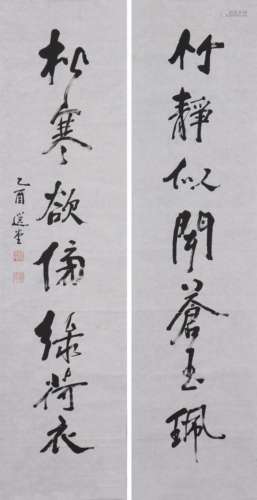 竹靜似聞蒼玉珮
松寒欲傍綠荷衣
乙酉 選堂